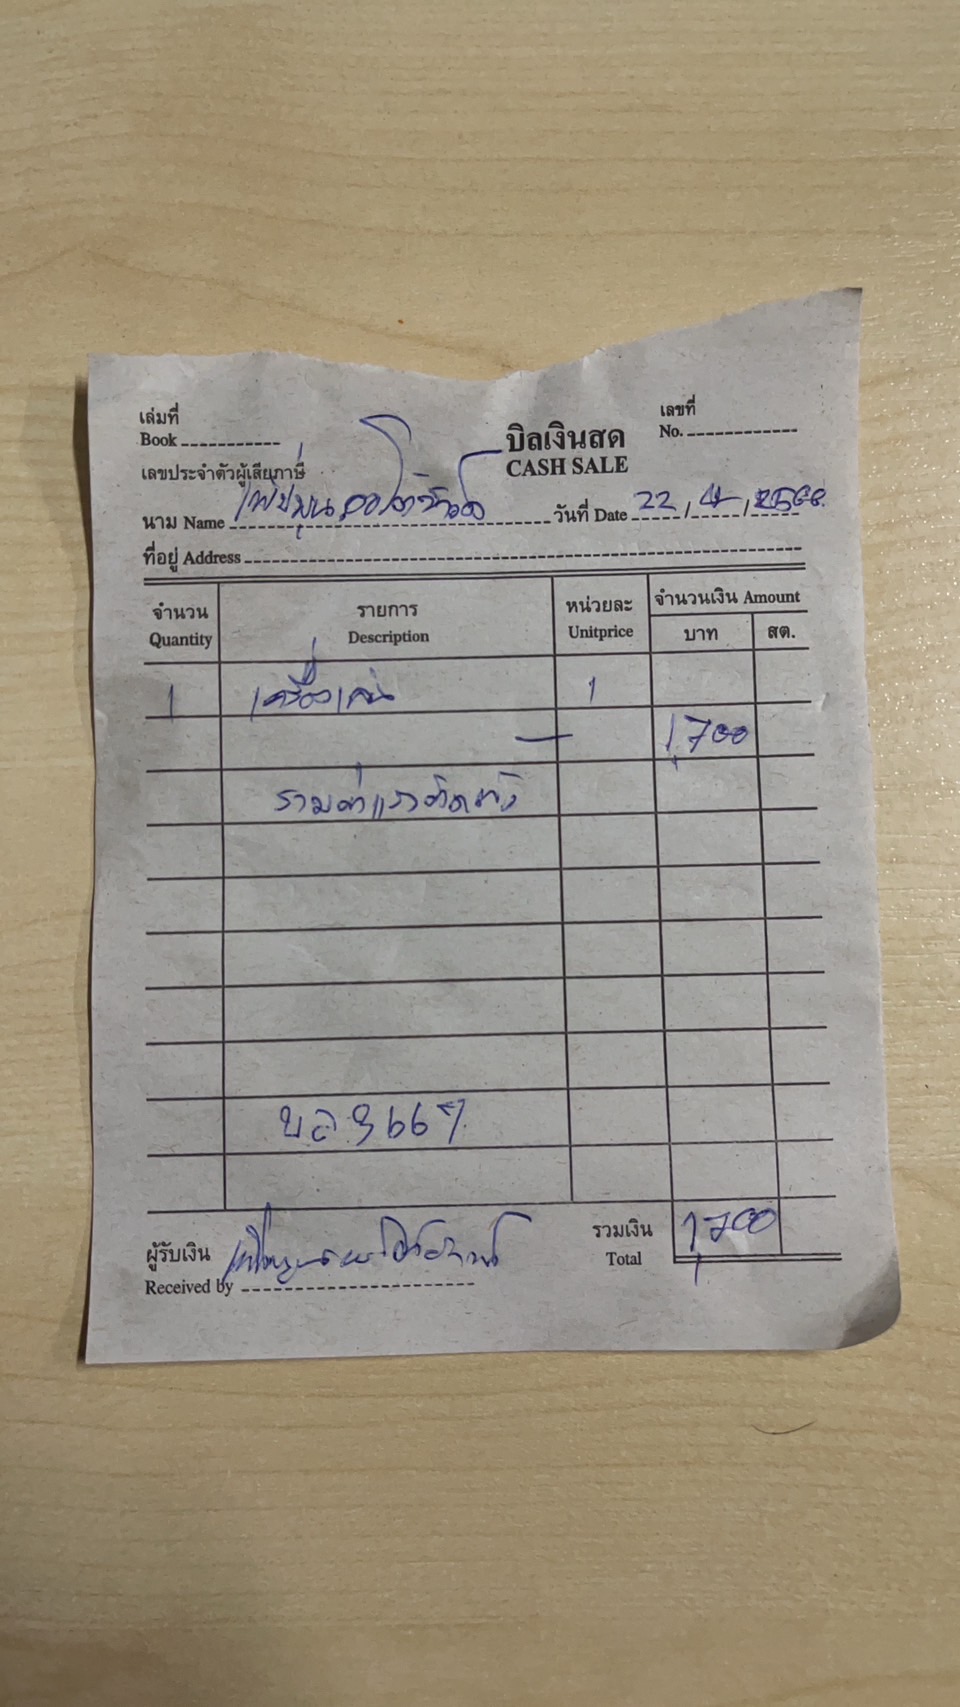 เล่มที่ เลขที่
Book บิลเงินสด No.
เลขประจำตัวผู้เสียภาษี CASH SALE
นาม Name วันที่ Date 22/4/2568
ที่อยู่ Address
จำนวน รายการ หน่วยละ จำนวนเงิน Amount
Quantity Description Unitprice บาท สต.
1 เครื่องเล่น 1
1,700
รวมค่าแรงติดตั้ง
ผู้รับเงิน รวมเงิน 1,700
Received by Total